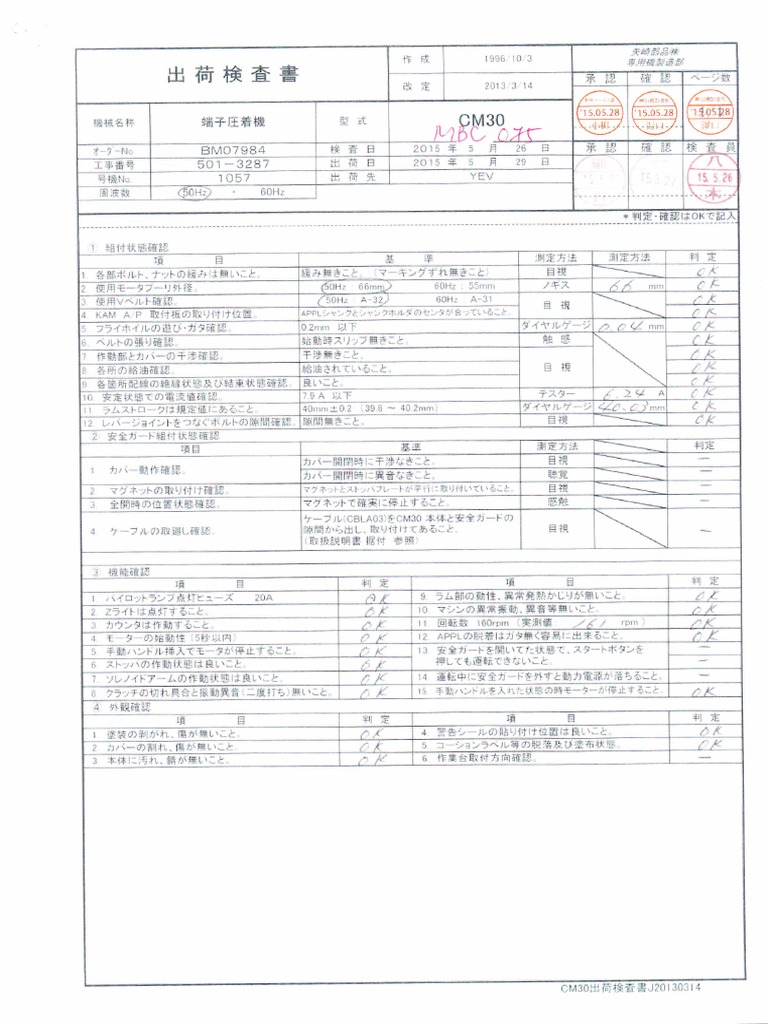 出荷検査書
作成 1996/10/3
改定 2013/3/14
矢崎部品㈱
専用機製造部
承認 確認 ページ数
'15.05.28 '15.05.28 '15.05.28
1/1
機械名称 端子圧着機 型式 CM30
MBC 075
オーダーNo BM07984 検査日 2015 年 5 月 26 日
工事番号 501-3287 出荷日 2015 年 5 月 29 日
号機No. 1057 出荷先 YEV
周波数 50Hz ・ 60Hz
承認 確認 検査員
15.5.26
*判定・確認はOKで記入
① 組付状態確認
項目 基準 測定方法 測定方法 判定
1. 各部ボルト、ナットの緩みは無いこと。 緩み無きこと。(マーキングずれ無きこと) 目視 OK
2 使用モータプーリ外径。 50Hz 66mm 60Hz : 55mm ノギス 66 mm OK
3 使用Vベルト確認。 50Hz A-32 60Hz A-31 目視 OK
4. KAM A/P 取付板の取り付け位置。 APPLシャンクとシャンクホルダのセンタが合っていること。 OK
5 フライホイルの遊び・ガタ確認。 0.2mm 以下 ダイヤルゲージ 0.04 mm OK
6. ベルトの張り確認。 始動時スリップ無きこと。 触感 OK
7 作動部とカバーの干渉確認。 干渉無きこと。 目視 OK
8 各所の給油確認。 給油されていること。 OK
9 各箇所配線の絶縁状態及び結束状態確認。 良いこと。 OK
10. 安定状態での電流値確認。 7.9 A 以下 テスター 6.24 A OK
11 ラムストロークは規定値にあること。 40mm±0.2 (39.8 ～ 40.2mm) ダイヤルゲージ 40.03 mm OK
12 レバージョイントをつなぐボルトの隙間確認。 隙間無きこと。 目視 OK
② 安全ガード組付状態確認
項目 基準 測定方法 判定
1 カバー動作確認。 カバー開閉時に干渉なきこと。 目視 ―
カバー開閉時に異音なきこと。 聴覚 ―
2 マグネットの取り付け確認。 マグネットとストッパプレートが平行に取り付いていること。 目視 ―
3 全開時の位置状態確認。 マグネットで確実に停止すること。 感触 ―
4 ケーブルの取廻し確認。 ケーブル(CBLA03)をCM30 本体と安全ガードの
隙間から出し、取り付けてあること。 目視 ―
(取扱説明書 据付 参照)
③ 機能確認
項目 判定 項目 判定
1 パイロットランプ点灯ヒューズ 20A OK 9. ラム部の動性、異常発熱かじりが無いこと。 OK
2 Zライトは点灯すること。 OK 10 マシンの異常振動、異音等無いこと。 OK
3 カウンタは作動すること。 OK 11 回転数 160rpm (実測値 161 rpm ) OK
4 モーターの始動性 (5秒以内) OK 12 APPLの脱着はガタ無く容易に出来ること。 OK
5 手動ハンドル挿入でモータが停止すること。 OK 13 安全ガードを開いてた状態で、スタートボタンを
6 ストッパの作動状態は良いこと。 OK 押しても運転できないこと。 ―
7. ソレノイドアームの作動状態は良いこと。 OK 14 運転中に安全ガードを外すと動力電源が落ちること。 ―
8 クラッチの切れ具合と振動異音(二度打ち)無いこと。 OK 15. 手動ハンドルを入れた状態の時モーターが停止すること。 OK
④ 外観確認
項目 判定 項目 判定
1 塗装の剥がれ、傷が無いこと。 OK 4 警告シールの貼り付け位置は良いこと。 OK
2 カバーの割れ、傷が無いこと。 OK 5 コーションラベル等の脱落及び塗布状態。 OK
3 本体に汚れ、錆が無いこと。 OK 6 作業台取付方向確認。 ―
CM30出荷検査書J20130314